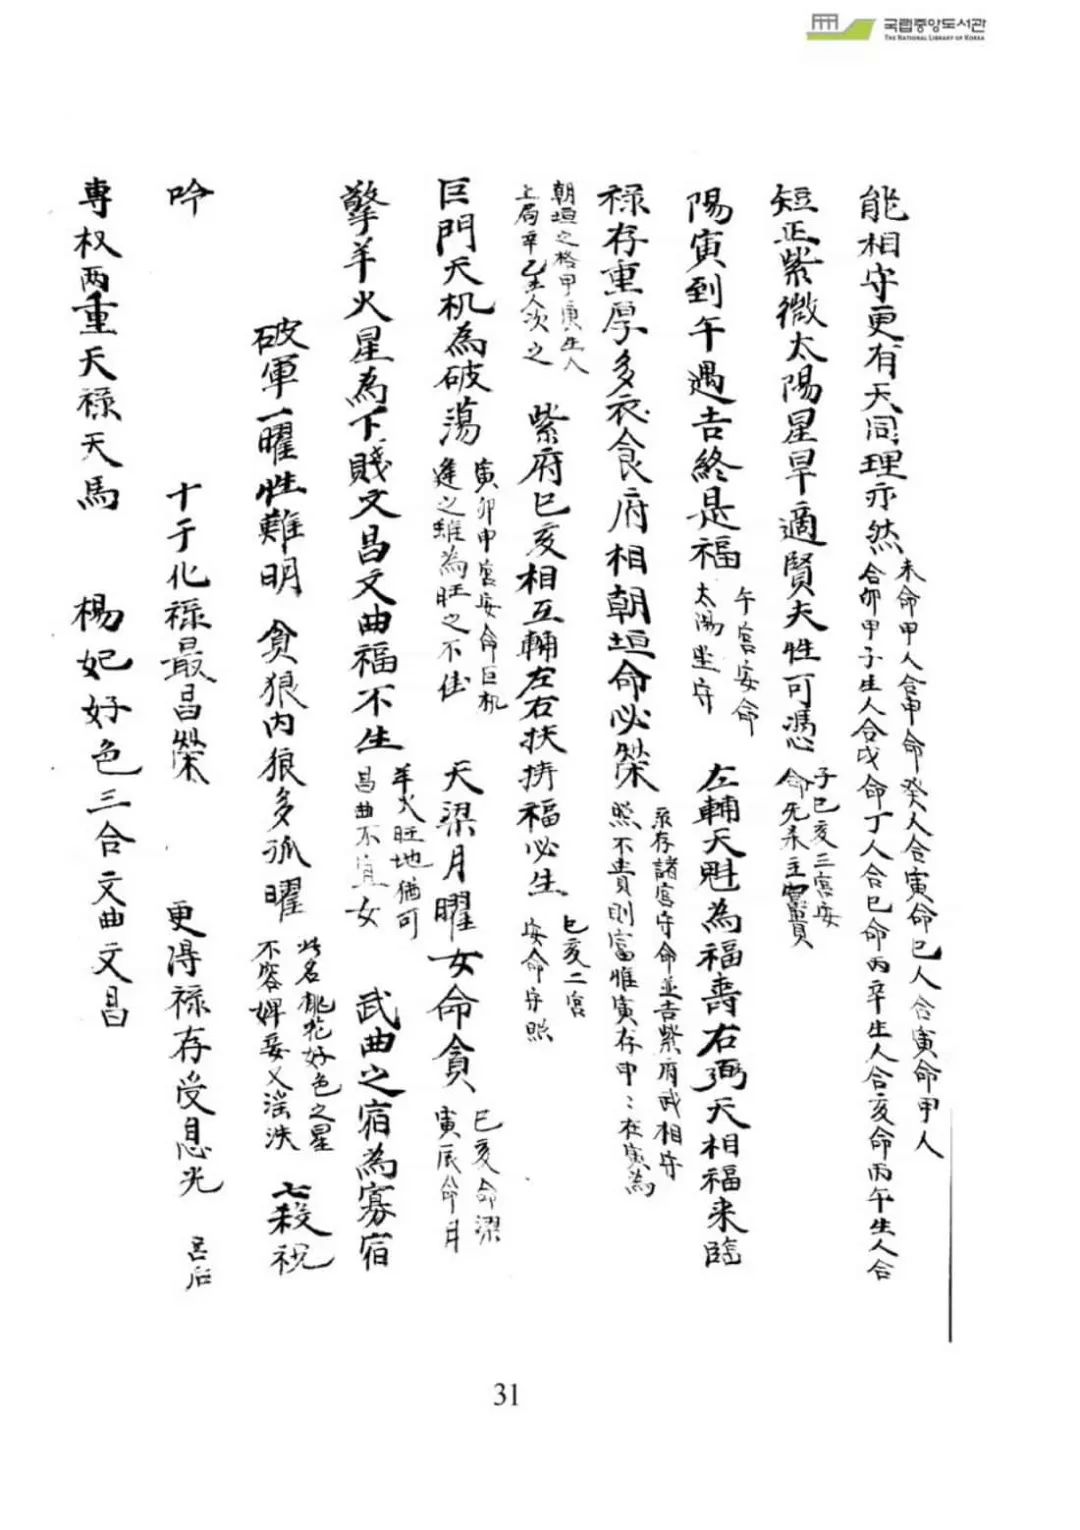 국립중앙도서관
THE NATIONAL LIBRARY OF KOREA
能相守更有天同理亦然 未命甲人合申命癸人合寅命巳人合寅命甲人 合卯甲子生人合戌命丁人合巳命丙辛生人合亥命丙午生人合
短正紫微太陽星早適賢夫性可憑 子巳亥三宮安 命无杀主
陽寅到午遇吉終是福 午宮安命 太陽坐守 左輔天魁為福壽右弼天相福来臨
禄存重厚多衣食府相朝垣命必榮 禄存諸宮守命並吉紫府武相守 照不貴則富惟寅存申〻在寅為
朝垣之格甲庚生人 上局辛乙生人次之 紫府巳亥相互輔左右扶持福必生 巳亥二宮 安命守照
巨門天机為破蕩 寅卯申宮安命巨机 逢之雖為旺之不佳 天梁月曜女命貪 巳亥命梁 寅辰命月
擎羊火星為下賤文昌文曲福不生 羊火旺地猶可 昌曲不宜女 武曲之宿為寡宿
破軍一曜性難明 貪狼内狼多孤曜 此名桃花好色之星 不容婢妾又滛泆 七殺祝
吟 十干化禄最昌榮 更得禄存受恩光 吕后
専权两重天禄天馬 楊妃好色三合文曲文昌
31